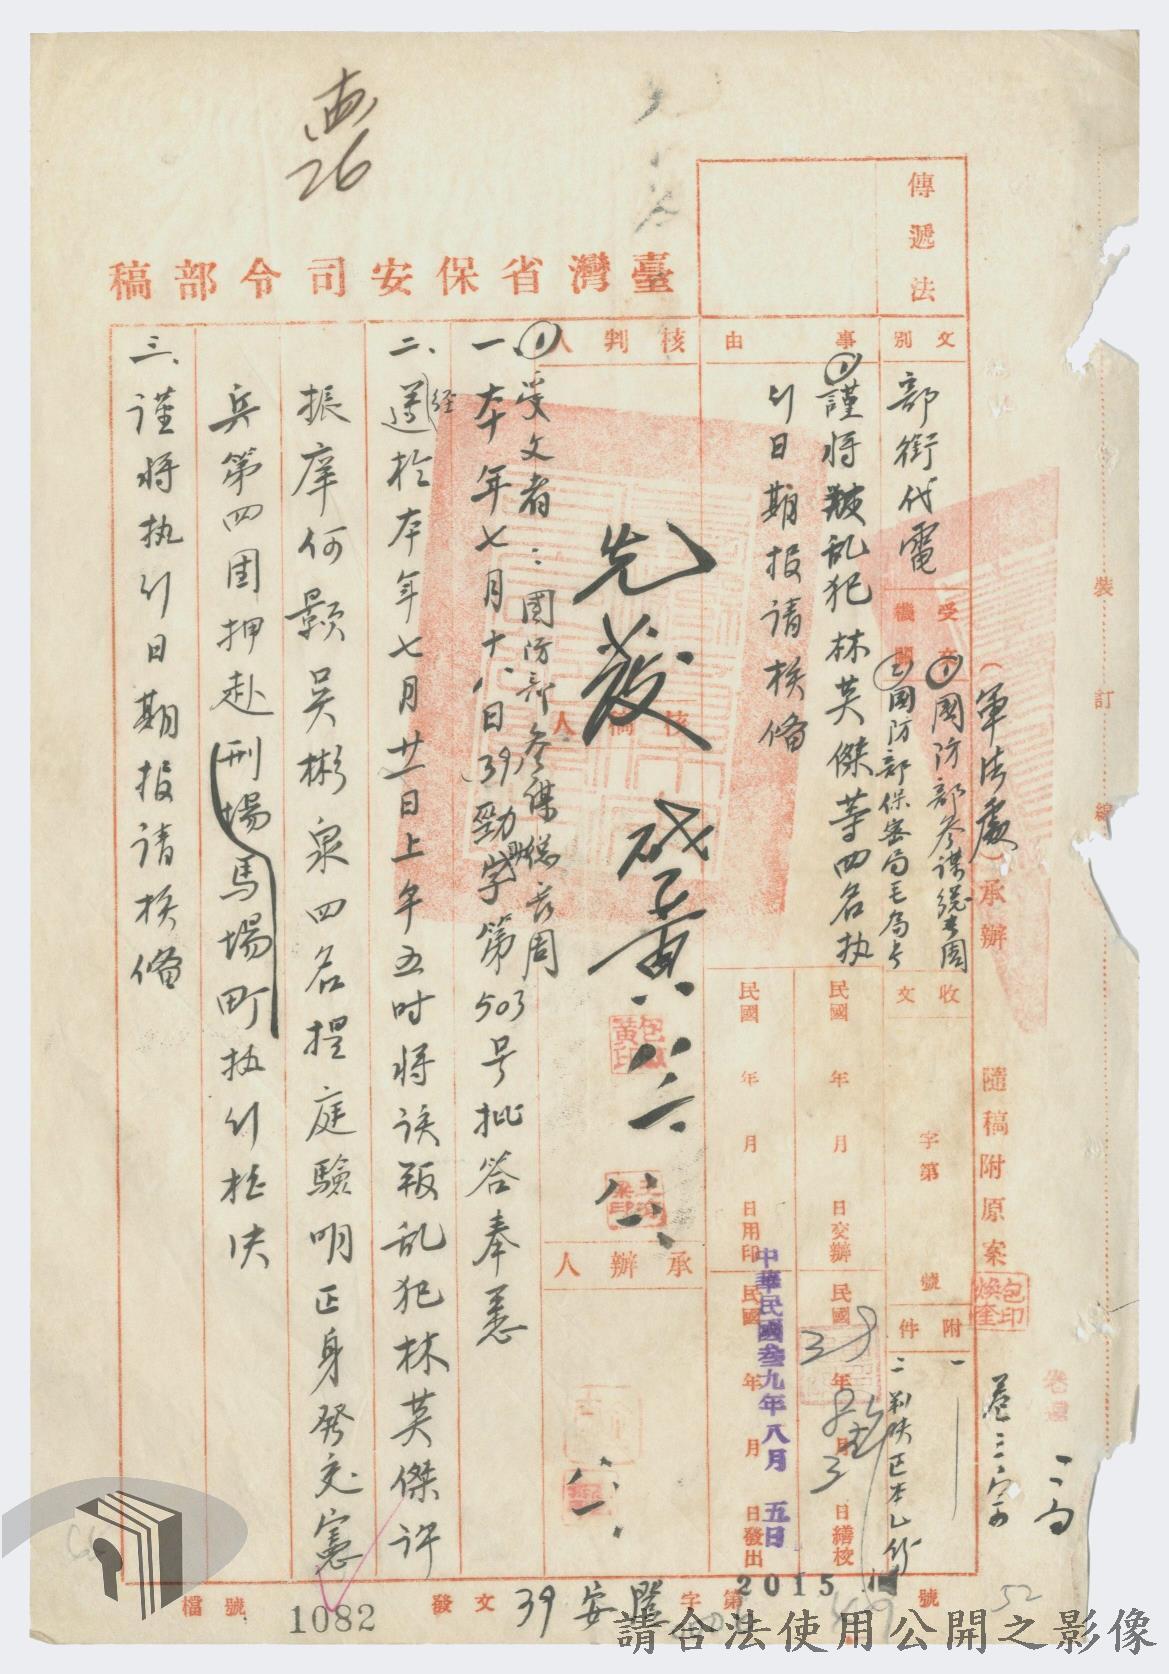 臺灣省保安司令部稿
傳遞法
文別
部銜代電
受文機關
①國防部參謀總長周
②國防部保密局毛局長
事由
①謹將叛乱犯林英傑等四名执
行日期报请核备
(軍法處)承辦
隨稿附原案
包煥奎印
收文
字第 號
附件
一
二 判决正本乙份
民國 年 月 日交辦
民國39年8月3日繕校
民國 年 月 日用印
民國 年 月 日發出
中華民國叁九年八月 五日
核判人
核稿人
承辦人
先發
①受文者：國防部參謀總長周
一、本年七月十八日(39)勁字第503号批答奉悉
二、遵经於本年七月廿一日上午五时将该叛乱犯林英傑许
振庠何顯吴彬泉四名提庭驗明正身發交憲
兵第四团押赴刑場馬場町执行枪决
三、谨将执行日期报请核备
檔號
1082
發文39安 字第2015號
裝訂線
請合法使用公開之影像